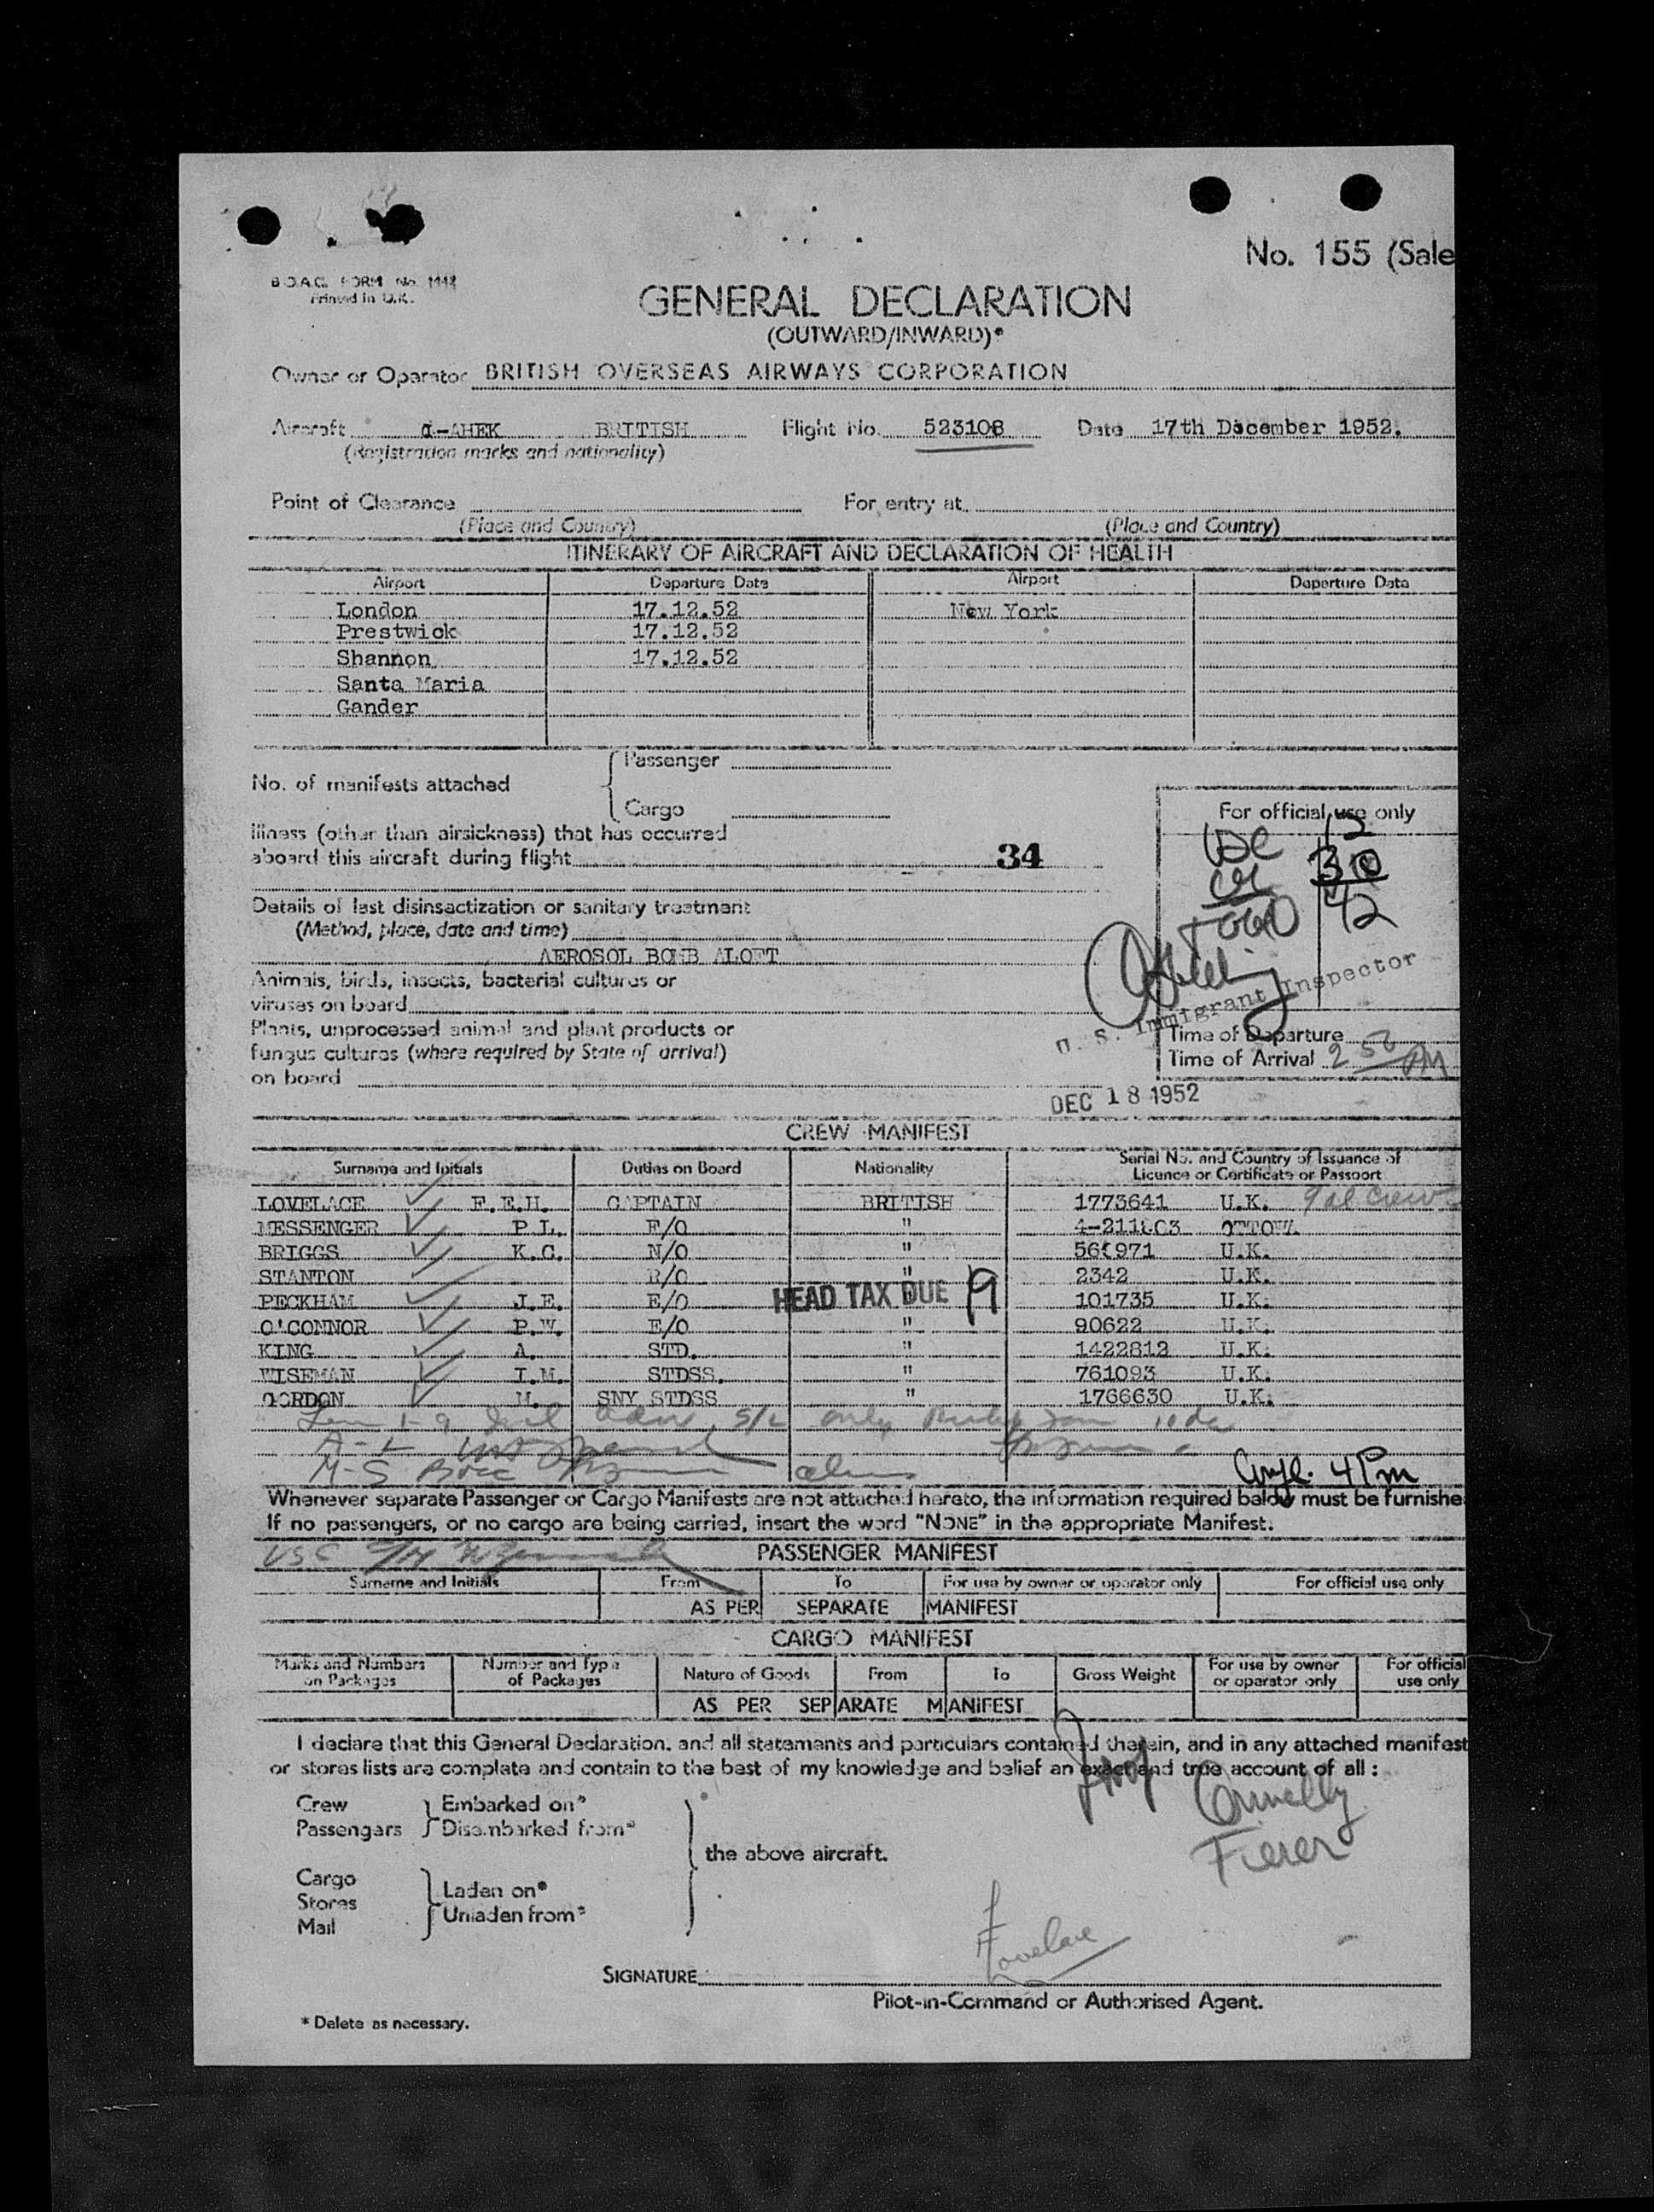 No. 155 (Sale
B.O.A.C. FORM No. 1442
Printed in U.K.
GENERAL DECLARATION
(OUTWARD/INWARD)*
Owner or Operator BRITISH OVERSEAS AIRWAYS CORPORATION
Aircraft G-AHEK BRITISH Flight No. 523108 Date 17th December 1952.
(Registration marks and nationality)
Point of Clearance For entry at
(Place and Country) (Place and Country)
ITINERARY OF AIRCRAFT AND DECLARATION OF HEALTH
Airport Departure Date Airport Departure Date
London 17.12.52 New York
Prestwick 17.12.52
Shannon 17.12.52
Santa Maria
Gander
No. of manifests attached
Passenger
Cargo
Illness (other than airsickness) that has occurred
aboard this aircraft during flight 34
Details of last disinsectization or sanitary treatment
(Method, place, date and time)
AEROSOL BOMB ALOFT
Animals, birds, insects, bacterial cultures or
viruses on board
Plants, unprocessed animal and plant products or
fungus cultures (where required by State of arrival)
on board
For official use only
12
30
42
U. S. Immigrant Inspector
Time of Departure
Time of Arrival 2 50 PM
DEC 18 1952
CREW MANIFEST
Surname and Initials Duties on Board Nationality Serial No. and Country of Issuance of
Licence or Certificate or Passport
LOVELACE F.E.H. CAPTAIN BRITISH 1773641 U.K. 9 al crew
MESSENGER P.L. F/O " OTTOWA
BRIGGS K.C. N/O " U.K.
STANTON R/O " 2342 U.K.
PECKHAM J.E. E/O 101735 U.K.
HEAD TAX DUE 9
O'CONNOR P.W. E/O " 90622 U.K.
KING A. STD. " 1422812 U.K.
WISEMAN I.M. STDSS. " 761093 U.K.
GORDON M. SNY STDSS " 1766630 U.K.
4 Pm
Whenever separate Passenger or Cargo Manifests are not attached hereto, the information required below must be furnishe
If no passengers, or no cargo are being carried, insert the word "NONE" in the appropriate Manifest.
PASSENGER MANIFEST
Surname and Initials From To For use by owner or operator only For official use only
AS PER SEPARATE MANIFEST
CARGO MANIFEST
Marks and Numbers on Packages Number and Type of Packages Nature of Goods From To Gross Weight For use by owner or operator only For official use only
AS PER SEPARATE MANIFEST
I declare that this General Declaration, and all statements and particulars contained therein, and in any attached manifest
or stores lists are complete and contain to the best of my knowledge and belief an exact and true account of all :
Crew
Passengers
Embarked on*
Disembarked from*
Cargo
Stores
Mail
Laden on*
Unladen from*
the above aircraft.
Connelly
Fierer
SIGNATURE Lovelace
Pilot-in-Command or Authorised Agent.
* Delete as necessary.